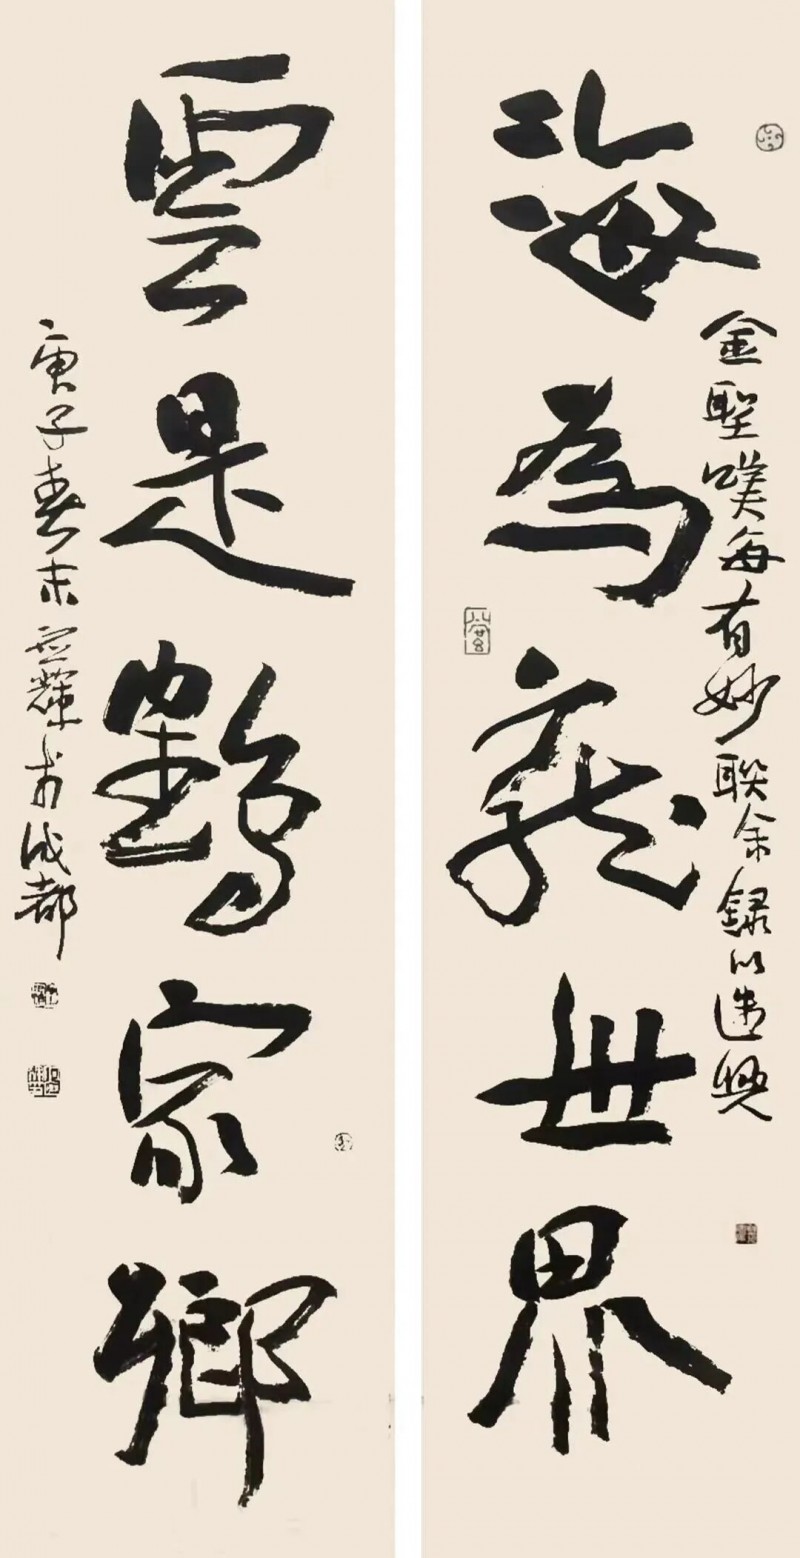 海為龍世界
金聖嘆每有妙聯余錄以遣興
雲是鶴家鄉
庚子春末應輝於成都